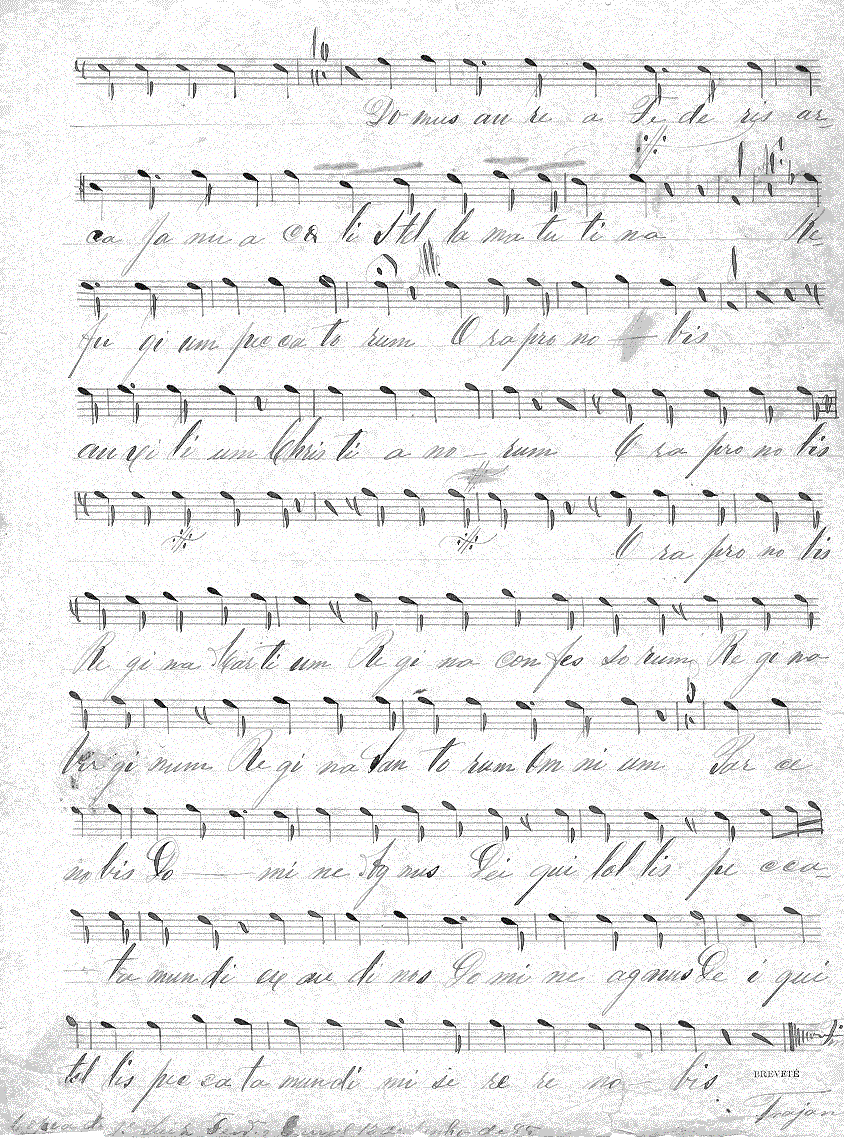 Do mus au re a Fe de ris ar-
ca Ja nu a Cœ li Stel la ma tu ti na Re-
fu gi um pec ca to rum O ra pro no — bis
au xi li um Chris ti a no - rum O ra pro no bis
O ra pro no bis
Re gi na Mar ti um Re gi na con fes so rum Re gi na
Vir gi num Re gi na San to rum Om ni um Par ce
no bis Do — mi ne Ag nus Dei qui tol lis pe cca-
ta mun di ex au di nos Do mi ne agnus De i qui
tol lis pec ca ta mundi mi se re re no - bis
BREVETÉ
Trajan